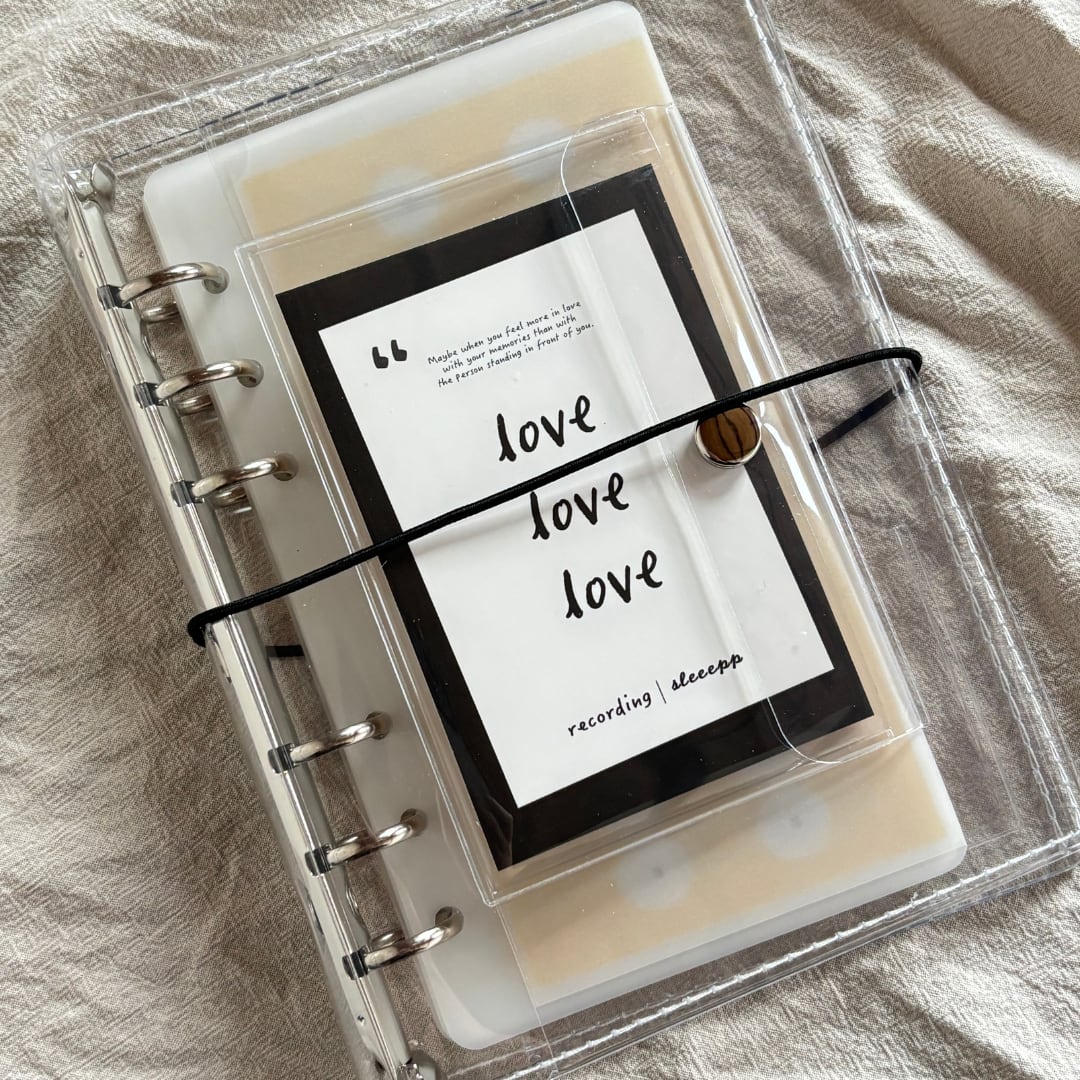 “
Maybe when you feel more in love
with your memories than with
the person standing in front of you.
love
love
love
recording | sleeepp